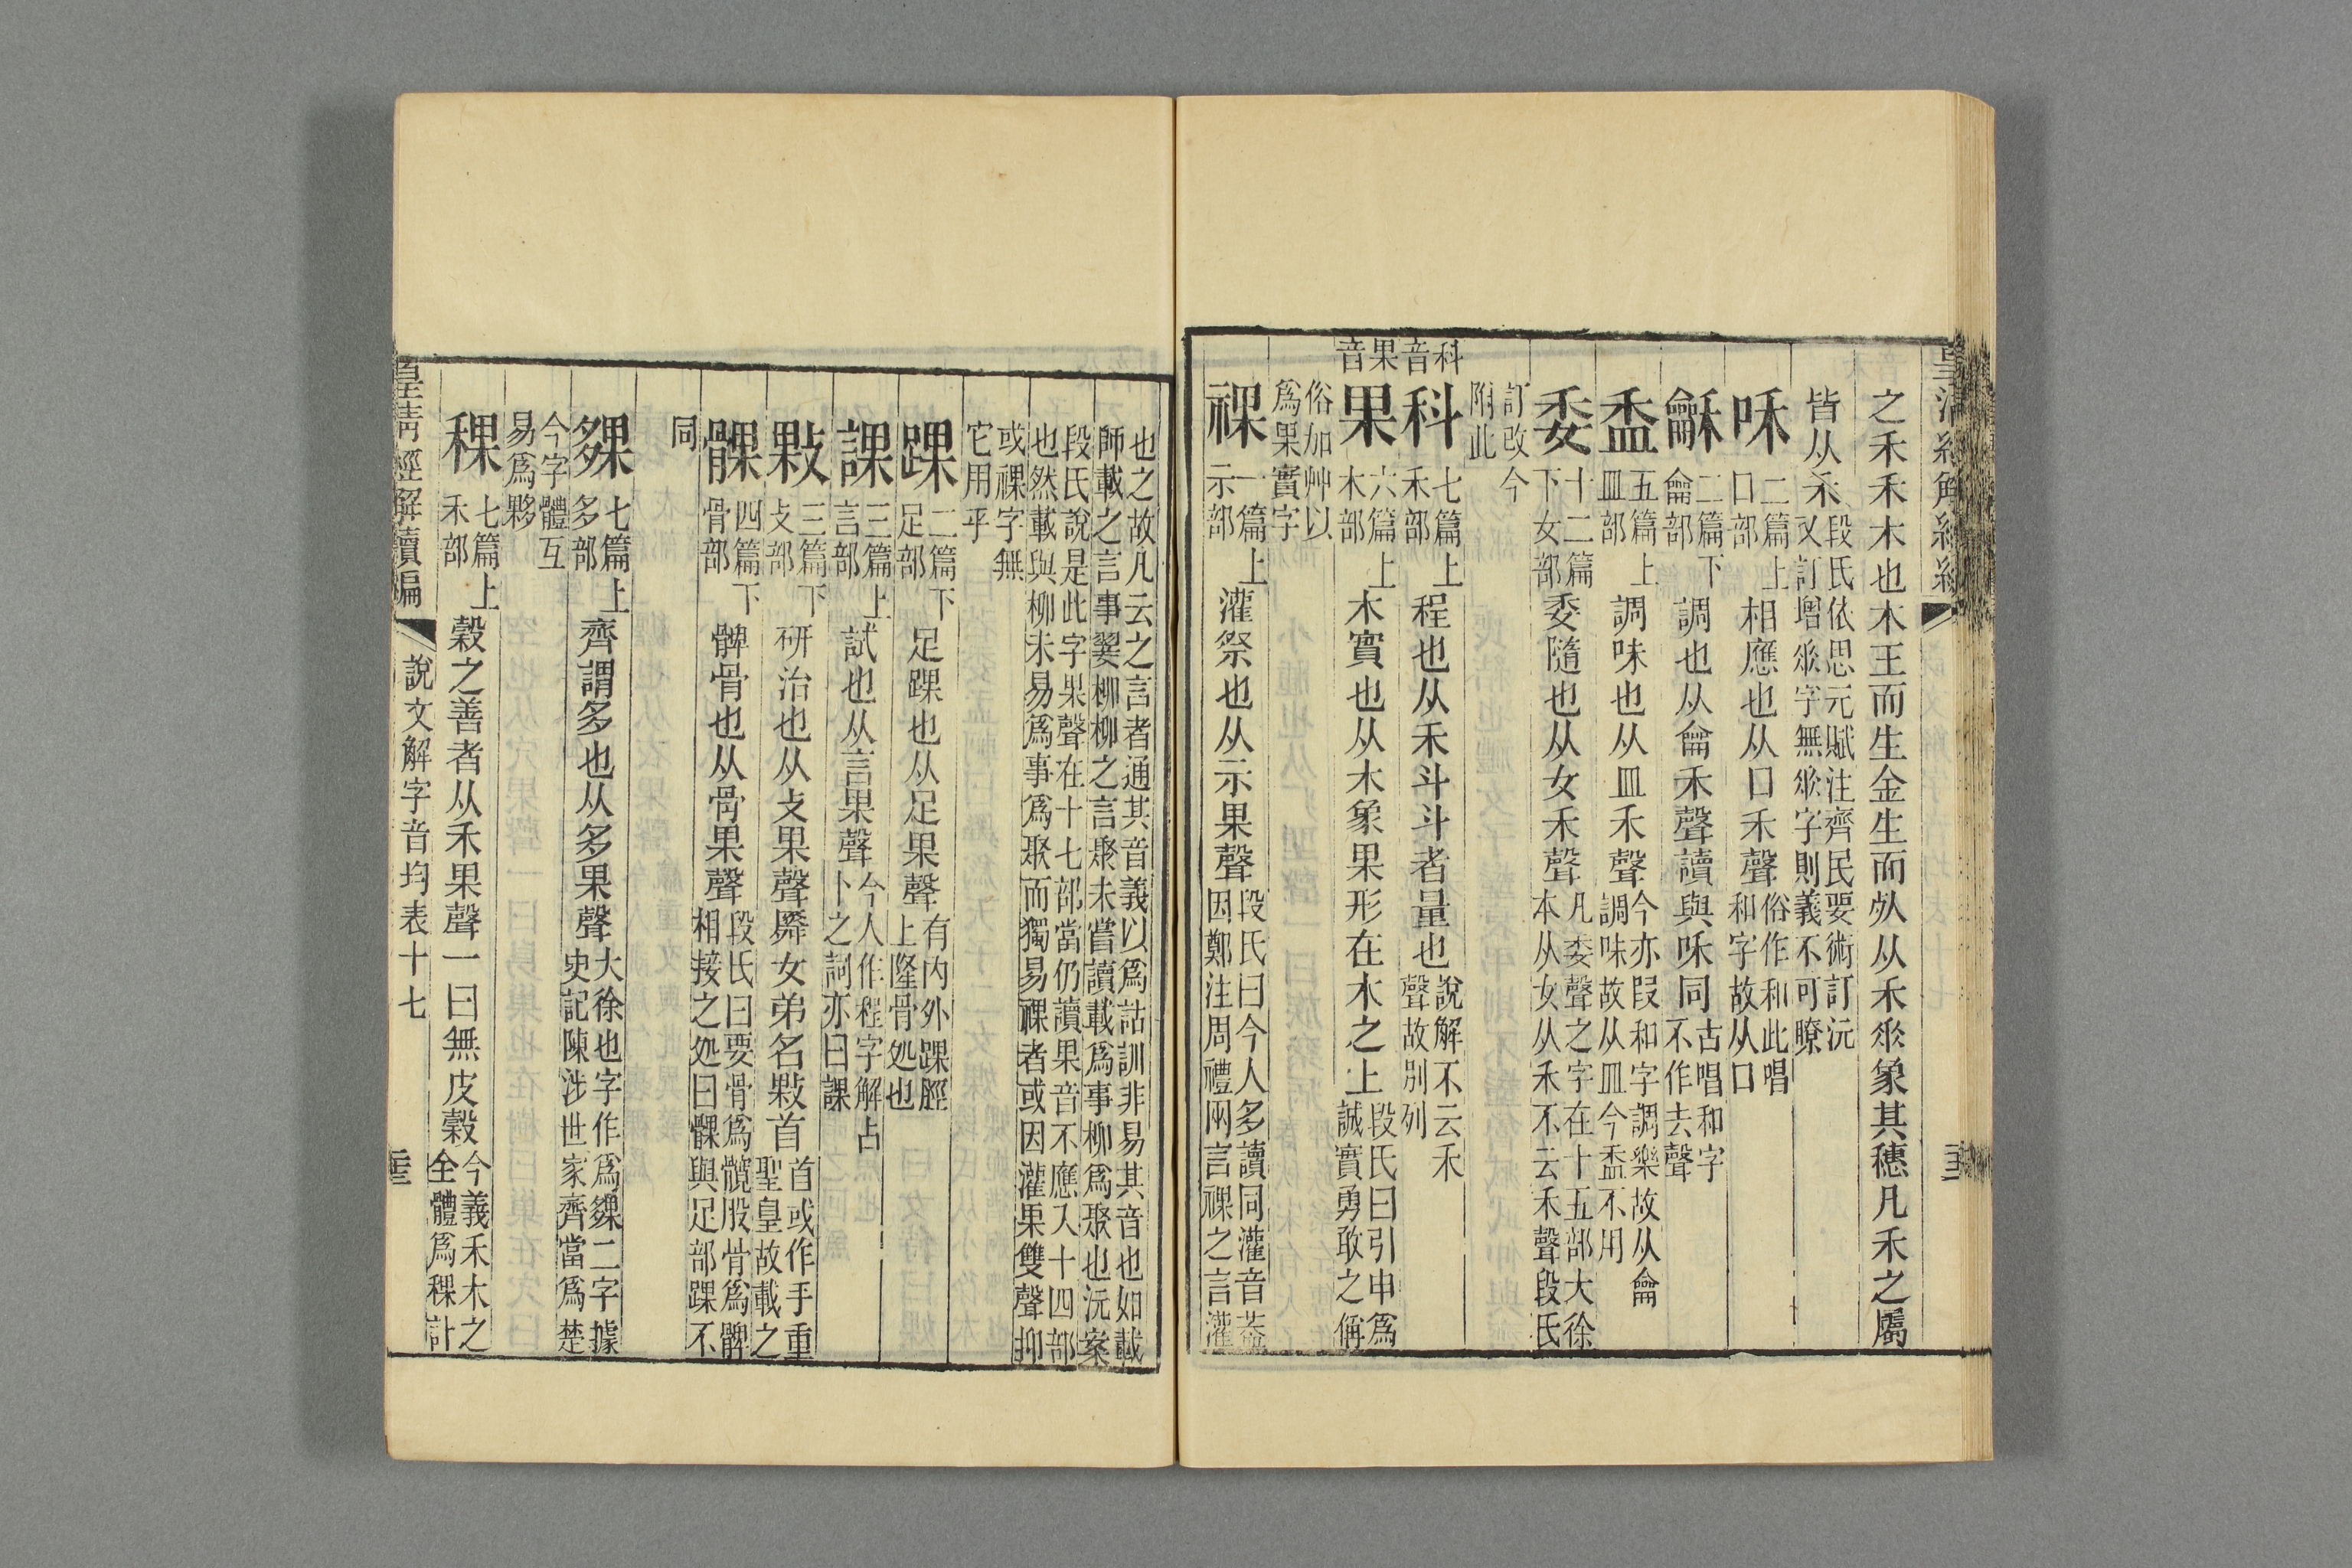 之禾禾木也木王而生金生而𣦸从禾𠂹象其穗凡禾之屬
皆从禾
段氏依思元賦注齊民要術訂沅
又訂增𠂹字無𠂹字則義不可瞭
咊
二篇上
口部
相應也从口禾聲
俗作和此唱
和字故从口
龢
二篇下
龠部
調也从龠禾聲讀與咊同
古唱和字
不作去聲
盉
五篇上
皿部
調味也从皿禾聲
今亦叚和字調樂故从龠
調味故从皿今盉不用
委
十二篇
下女部
委隨也从女禾聲
凡委聲之字在十五部大徐
本从女从禾不云禾聲段氏
訂改今
附此
科音
科
七篇上
禾部
程也从禾斗斗者量也
說解不云禾
聲故別列
果音
果
六篇上
木部
木實也从木象果形在木之上
段氏曰引申爲
誠實勇敢之偁
俗加艸以
爲果實字
祼
一篇上
示部
灌祭也从示果聲
段氏曰今人多讀同灌音葢
因鄭注周禮兩言祼之言灌
也之故凡云之言者通其音義以爲詁訓非易其音也如載
師載之言事翣柳柳之言聚未嘗讀載爲事柳爲聚也沅案
段氏說是此字果聲在十七部當仍讀果音不應入十四部
也然載與柳未易爲事爲聚而獨易祼者或因灌果雙聲抑
或祼字無
它用乎
踝
二篇下
足部
足踝也从足果聲
有內外踝脛
上隆骨処也
課
三篇上
言部
試也从言果聲
今人作程字解占
卜之詞亦曰課
敤
三篇下
攴部
研治也从攴果聲舜女弟名敤首
首或作手重
聖皇故載之
髁
四篇下
骨部
髀骨也从骨果聲
段氏曰要骨爲髖股骨爲髀
相接之処曰髁與足部踝不
同
夥
七篇上
多部
齊謂多也从多果聲
大徐也字作爲夥二字據
史記陳涉世家齊當爲楚
今字體互
易爲夥
稞
七篇上
禾部
穀之善者从禾果聲一曰無皮穀
今義禾木之
全體爲稞計
皇清經解續編
說文解字音均表十七